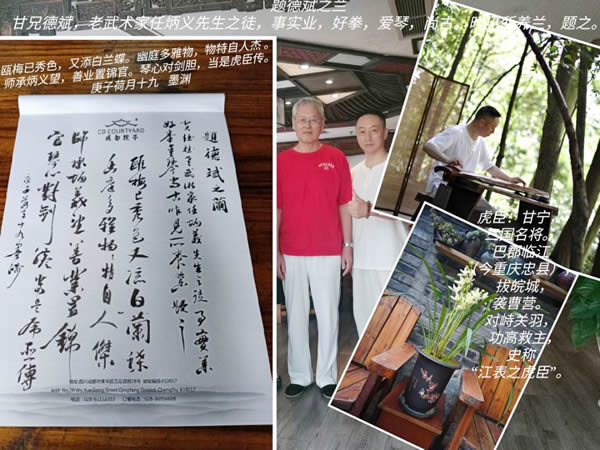 题德斌之兰
甘兄德斌，老武术家任炳义先生之徒，事实业，好拳，爱琴，尚古。昨见所养兰，题之。
瓯梅已秀色，又添白兰蝶。幽庭多雅物，物特自人杰。
师承炳义望，善业置锦官。琴心对剑胆，当是虎臣传。
庚子荷月十九 墨渊
CD COURTYARD
成都院子
题德斌之兰
老武术家任炳义先生之徒事实业
好拳爱琴尚古昨见所养兰题之
瓯梅已秀色又添白兰蝶
幽庭多雅物物特自人杰
师承炳义望善业置锦
官琴心对剑胆当是虎臣传
庚子荷月十九墨渊
虎臣：甘宁。
三国名将。
巴郡临江
（今重庆忠县），
拔皖城，
袭曹营。
对峙关羽，
功高救主，
史称
“江表之虎臣”。